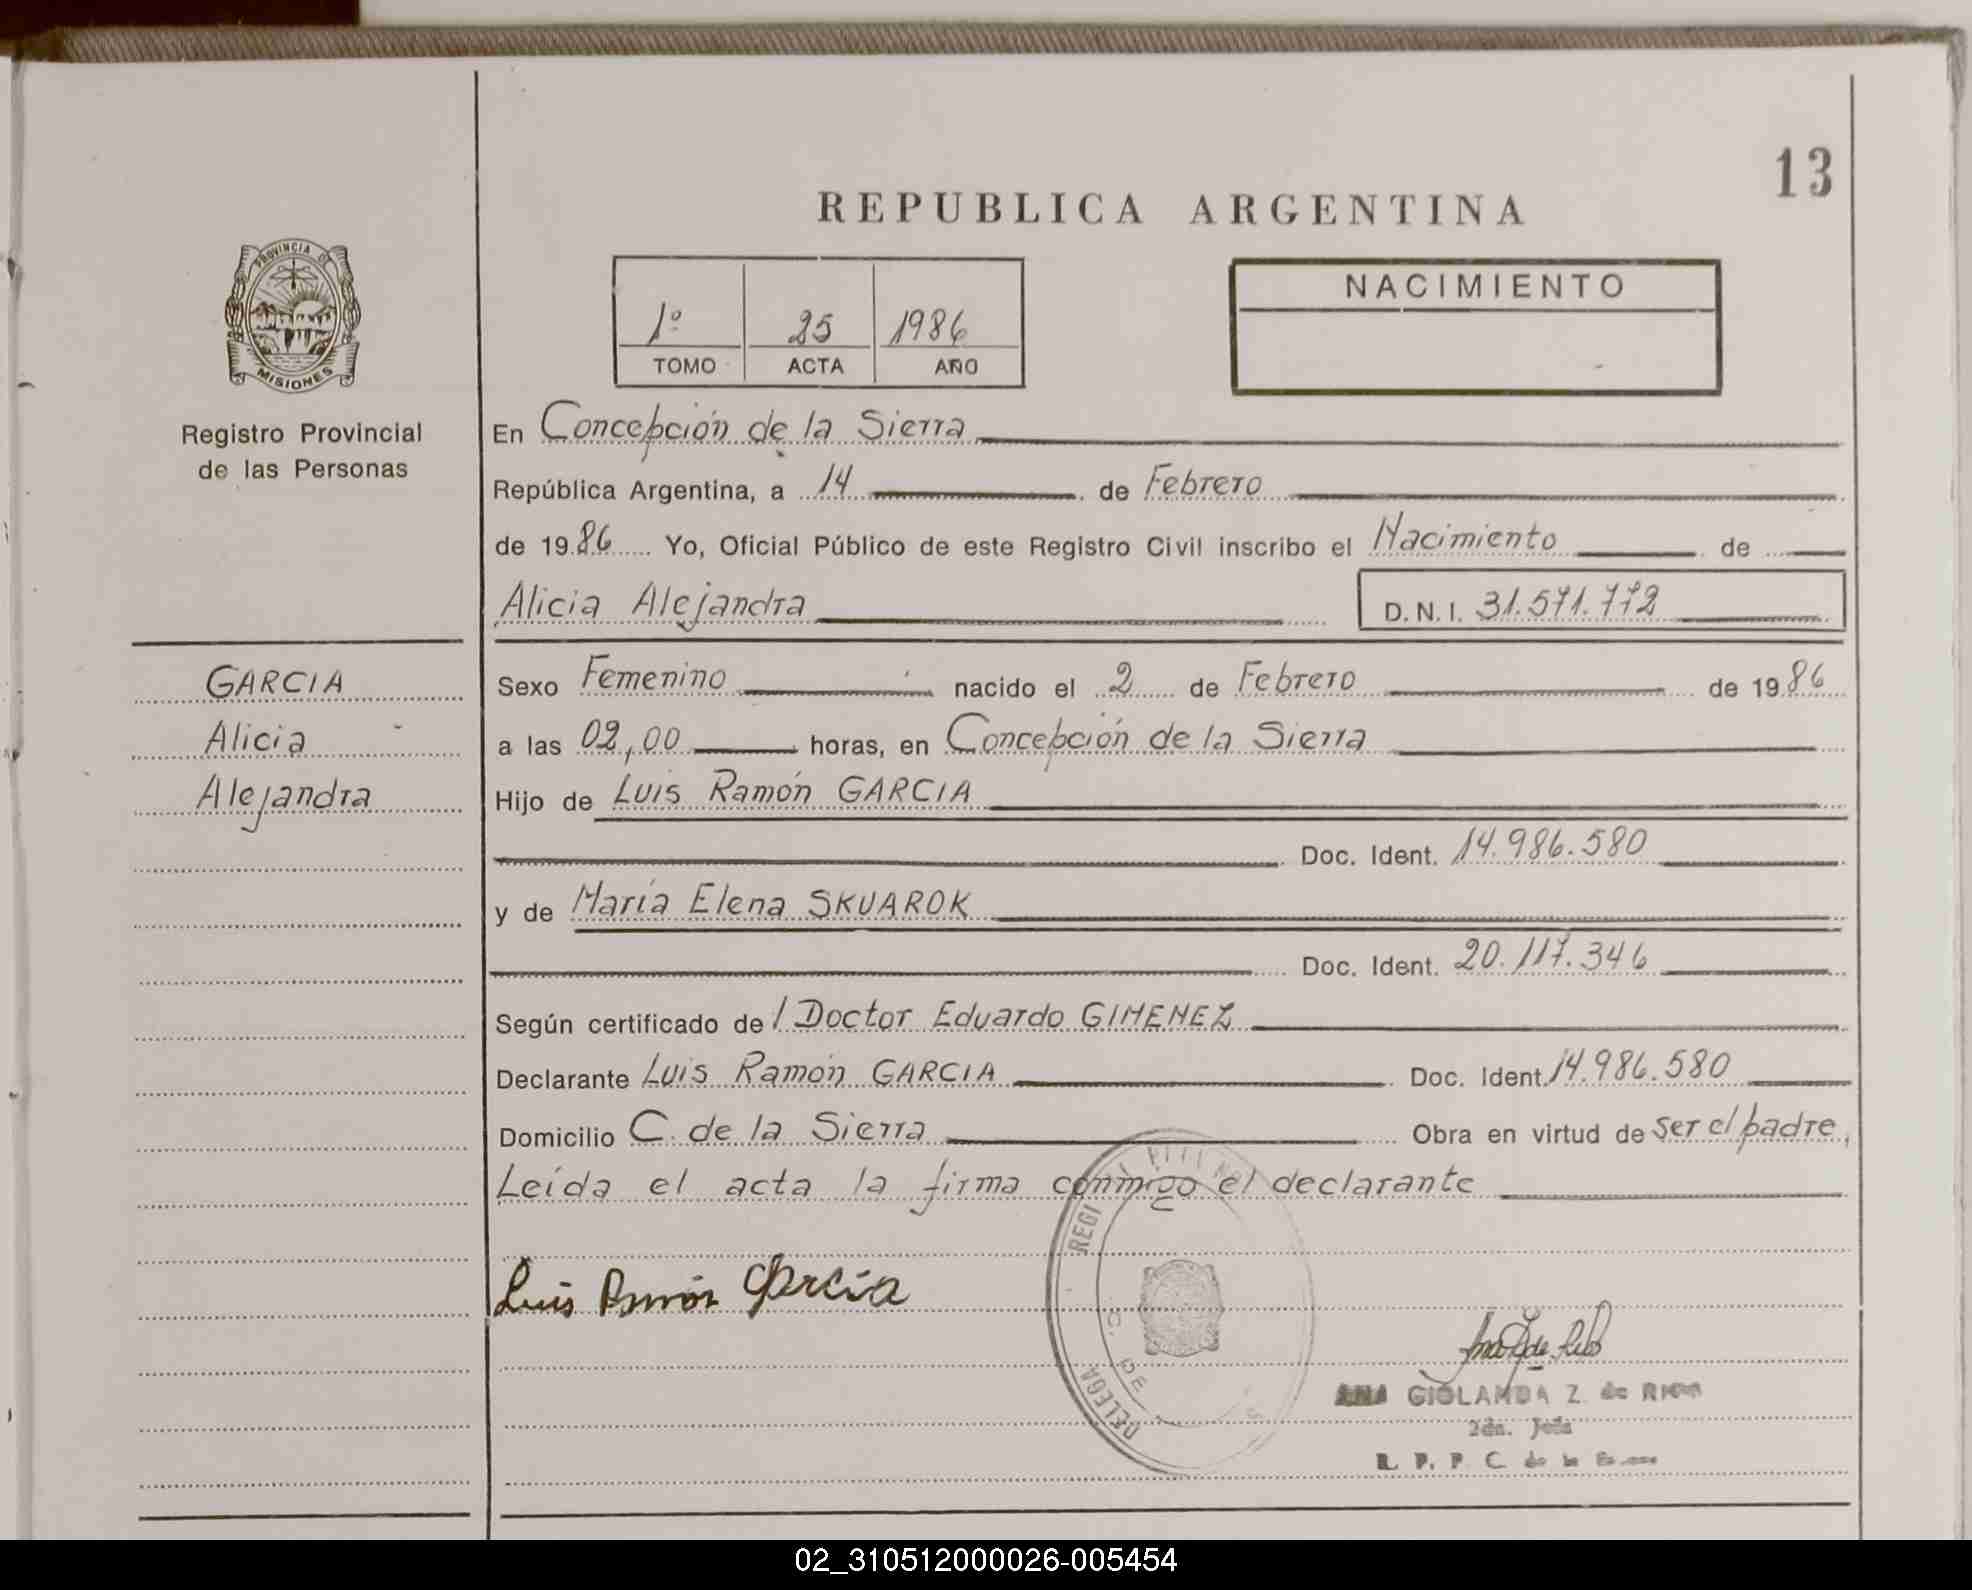 13
REPUBLICA ARGENTINA
PROVINCIA DE
MISIONES
Registro Provincial
de las Personas
1º 25 1986
TOMO ACTA AÑO
NACIMIENTO
En Concepción de la Sierra
República Argentina, a 14 de Febrero
de 1986 Yo, Oficial Público de este Registro Civil inscribo el Nacimiento de
Alicia Alejandra D.N.I. 31.571.772
GARCIA
Alicia
Alejandra
Sexo Femenino nacido el 2 de Febrero de 1986
a las 02,00 horas, en Concepción de la Sierra
Hijo de Luis Ramón GARCIA
Doc. Ident. 14.986.580
y de María Elena SKUAROK
Doc. Ident. 20.117.346
Según certificado del Doctor Eduardo GIMENEZ
Declarante Luis Ramón GARCIA Doc. Ident. 14.986.580
Domicilio C. de la Sierra Obra en virtud de ser el padre,
Leída el acta la firma conmigo el declarante
Luis Ramón García
ANA GIOLANDA Z. de RIOS
2da. Jefa
R. P. P. C. de la
02_310512000026-005454